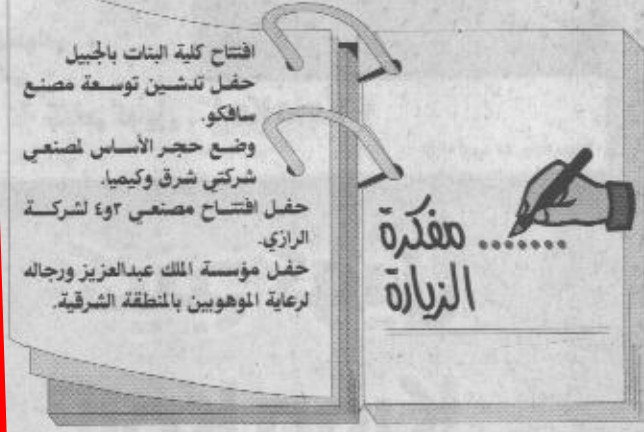 مفكرة .......
الزيارة
افتتاح كلية البنات بالجبيل
حفل تدشين توسعة مصنع
سافكو.
وضع حجر الأساس لمصنعي
شركتي شرق وكيميا.
حفل افتتاح مصنعي ٣و٤ لشركة
الرازي.
حفل مؤسسة الملك عبدالعزيز ورجاله
لرعاية الموهوبين بالمنطقة الشرقية.